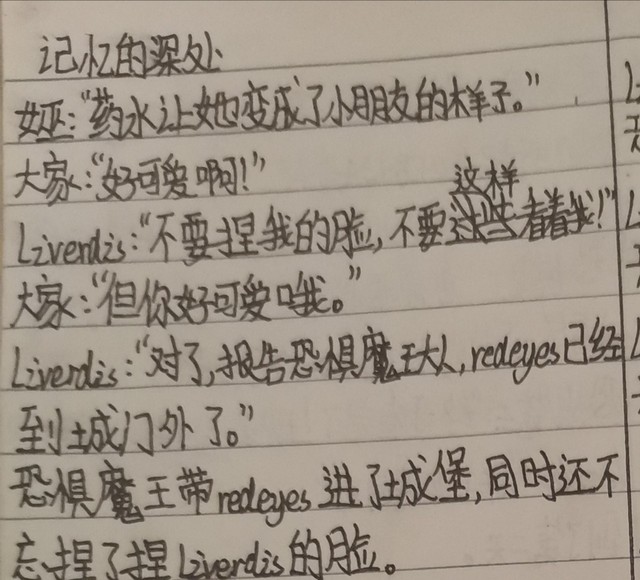 记忆的深处
女巫：“药水让她变成了小朋友的样子。”
大家：“好可爱啊！”
Liverdis：“不要捏我的脸，不要这样看着我！”
大家：“但你好可爱哦。”
Liverdis：“对了，报告恐惧魔王大人，redeyes已经
到城门外了。”
恐惧魔王带redeyes进了城堡，同时还不
忘捏了捏Liverdis的脸。